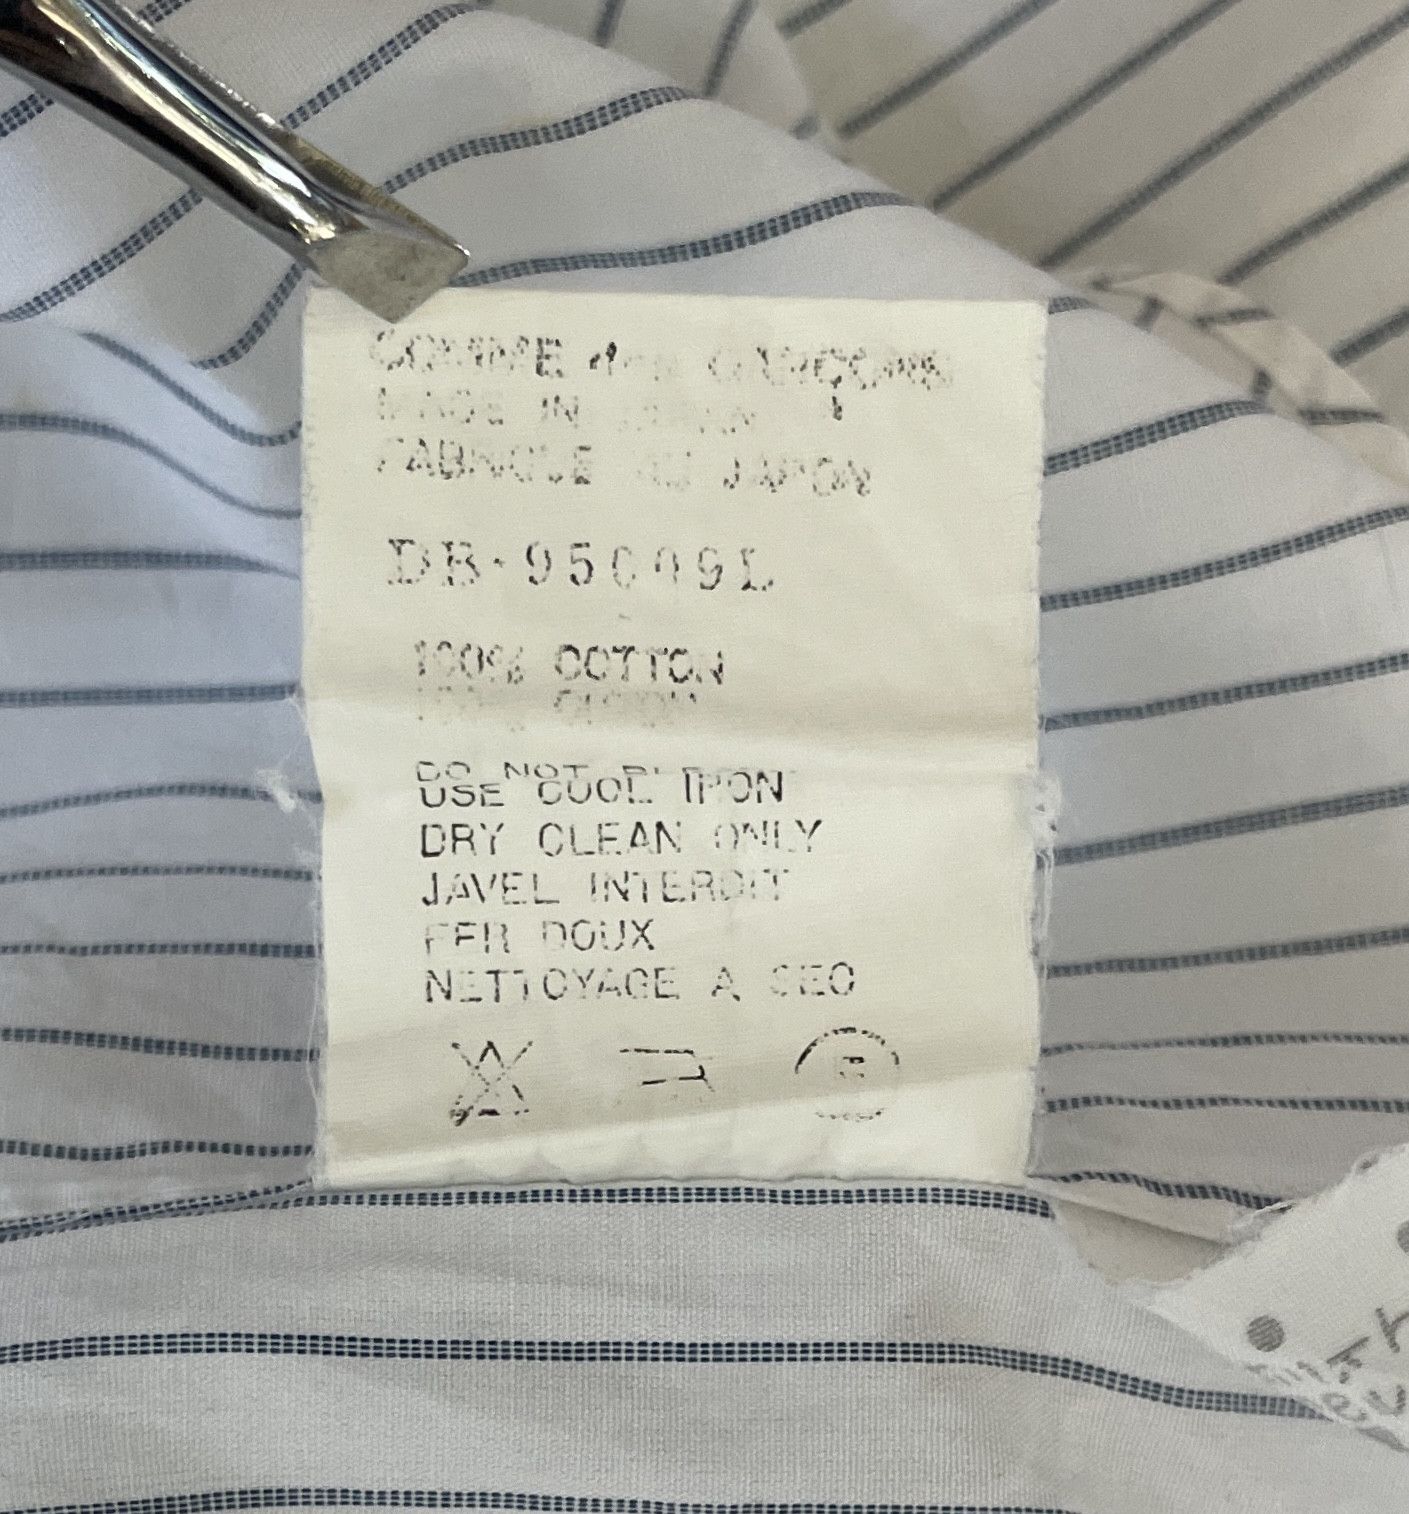 COMME des GARCONS
MADE IN JAPAN
FABRIQUE AU JAPON
DB-95009L
100% COTTON
100% COTON
DO NOT
USE COOL IRON
DRY CLEAN ONLY
JAVEL INTERDIT
FER DOUX
NETTOYAGE A SEC